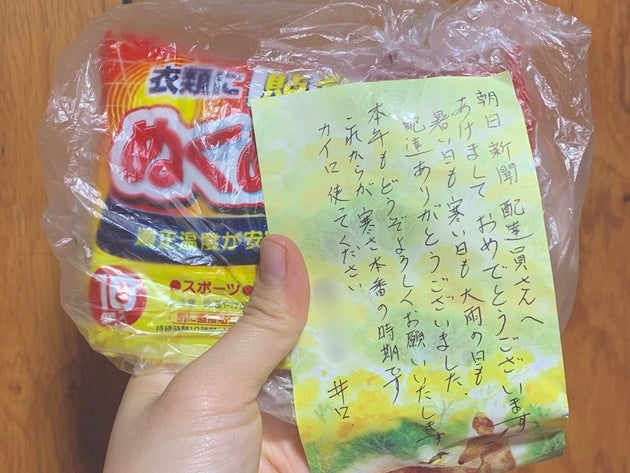 衣類に貼
ぬく
適正温度が安
10
●スポーツ
持続時間10時間
朝日新聞配達員さんへ
あけましておめでとうございます
暑い日も寒い日も大雨の日も
配達ありがとうございました
本年もどうぞよろしくお願いいたします
これからが寒さ本番の時期です
カイロ使ってください
井口